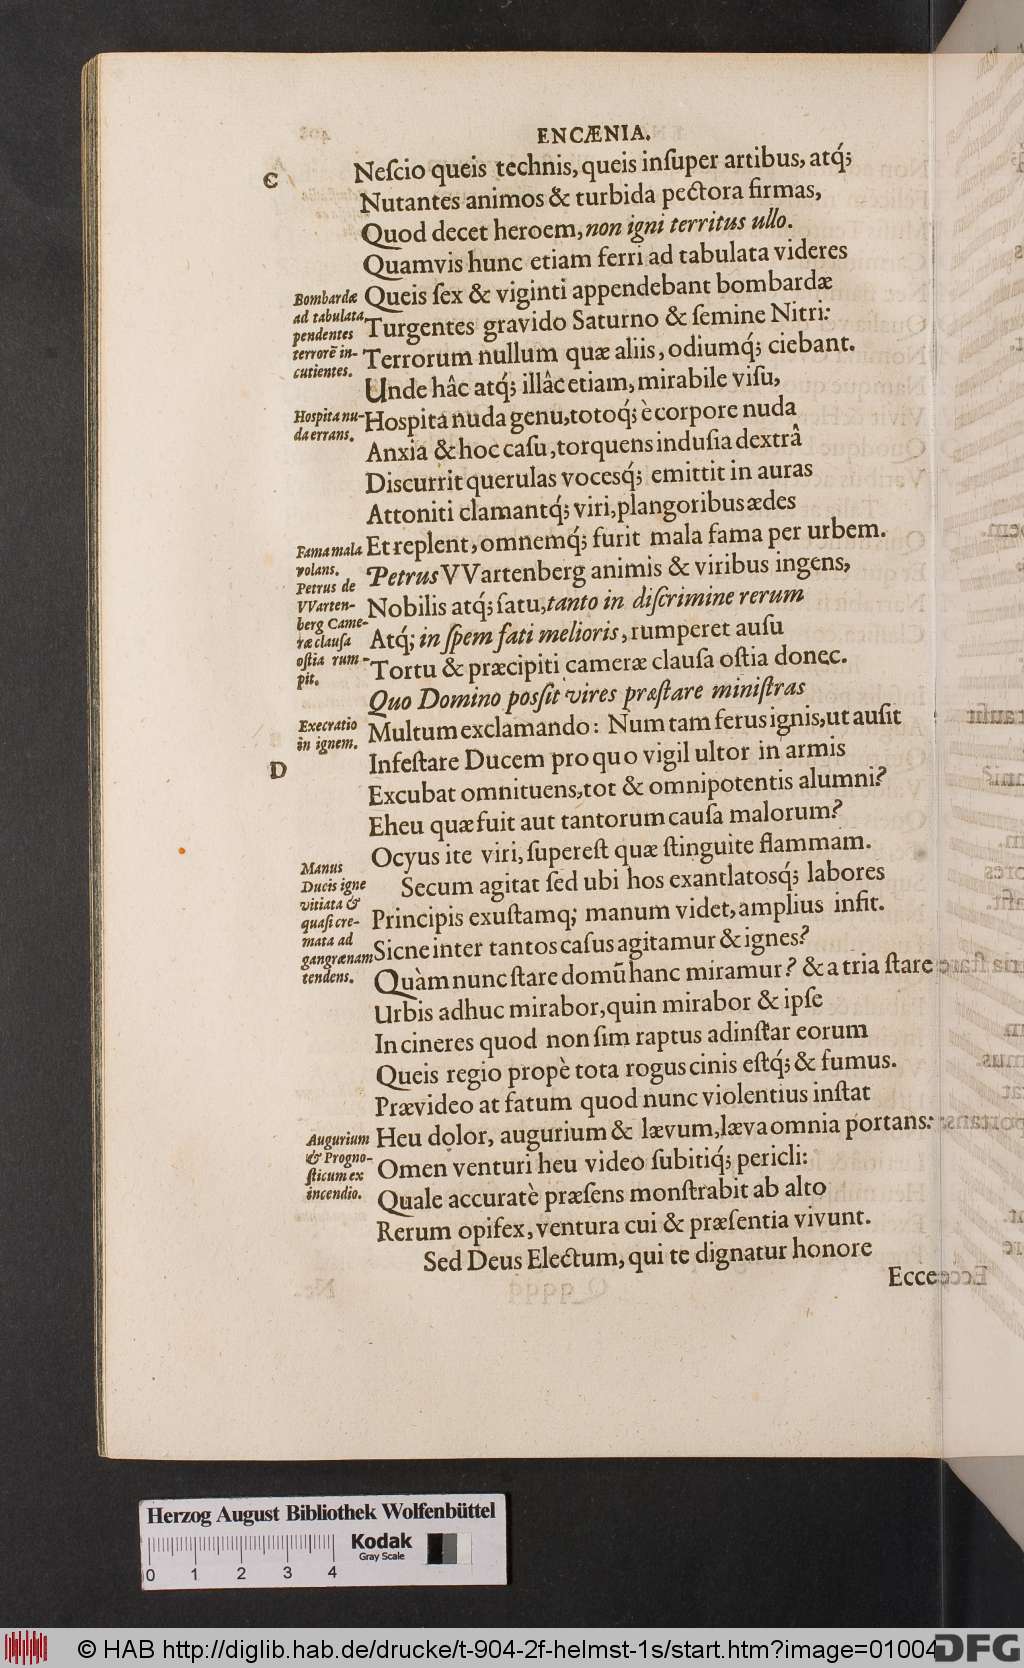 ENCÆNIA.
C
Neſcio queis technis, queis inſuper artibus, atq́;
Nutantes animos & turbida pectora firmas,
Quod decet heroem, non igni territus ullo.
Quamvis hunc etiam ferri ad tabulata videres
Bombardæ
ad tabulata
pendentes
terrorē in-
cutientes.
Queis ſex & viginti appendebant bombardæ
Turgentes gravido Saturno & ſemine Nitri:
Terrorum nullum quæ aliis, odiumq́; ciebant.
Unde hâc atq́; illâc etiam, mirabile viſu,
Hospita nu-
da errans.
Hoſpita nuda genu, totoq́; è corpore nuda
Anxia & hoc caſu, torquens induſia dextrâ
Diſcurrit querulas vocesq́; emittit in auras
Attoniti clamantq́; viri, plangoribus ædes
Fama mala
volans.
Et replent, omnemq́; furit mala fama per urbem.
Petrus de
VVarten-
berg Came-
ræ clauſa
oſtia rum-
pit.
Petrus VVartenberg animis & viribus ingens,
Nobilis atq́; ſatu, tanto in diſcrimine rerum
Atq́; in ſpem fati melioris, rumperet auſu
Tortu & præcipiti cameræ clauſa oſtia donec.
Quo Domino poſſit vires præſtare miniſtras
Execratio
in ignem.
Multum exclamando: Num tam ferus ignis, ut auſit
D
Infeſtare Ducem pro quo vigil ultor in armis
Excubat omnituens, tot & omnipotentis alumni?
Eheu quæ fuit aut tantorum cauſa malorum?
Ocyus ite viri, ſupereſt quæ ſtinguite flammam.
Manus
Ducis igne
vitiata &
quaſi cre-
mata ad
gangrænam
tendens.
Secum agitat ſed ubi hos exantlatosq́; labores
Principis exuſtamq; manum videt, amplius infit.
Sicne inter tantos caſus agitamur & ignes?
Quàm nunc ſtare domū hanc miramur? & atria ſtare
Urbis adhuc mirabor, quin mirabor & ipſe
In cineres quod non ſim raptus ad inſtar eorum
Queis regio propè tota rogus cinis eſtq́; & fumus.
Prævideo at fatum quod nunc violentius inſtat
Augurium
& Progno-
ſticum ex
incendio.
Heu dolor, augurium & lævum, læva omnia portans:
Omen venturi heu video ſubitiq́; pericli:
Quale accuratè præſens monſtrabit ab alto
Rerum opifex, ventura cui & præſentia vivunt.
Sed Deus Electum, qui te dignatur honore
Ecce
Herzog August Bibliothek Wolfenbüttel
Kodak
Gray Scale
0 1 2 3 4
© HAB http://diglib.hab.de/drucke/t-904-2f-helmst-1s/start.htm?image=01004
DFG